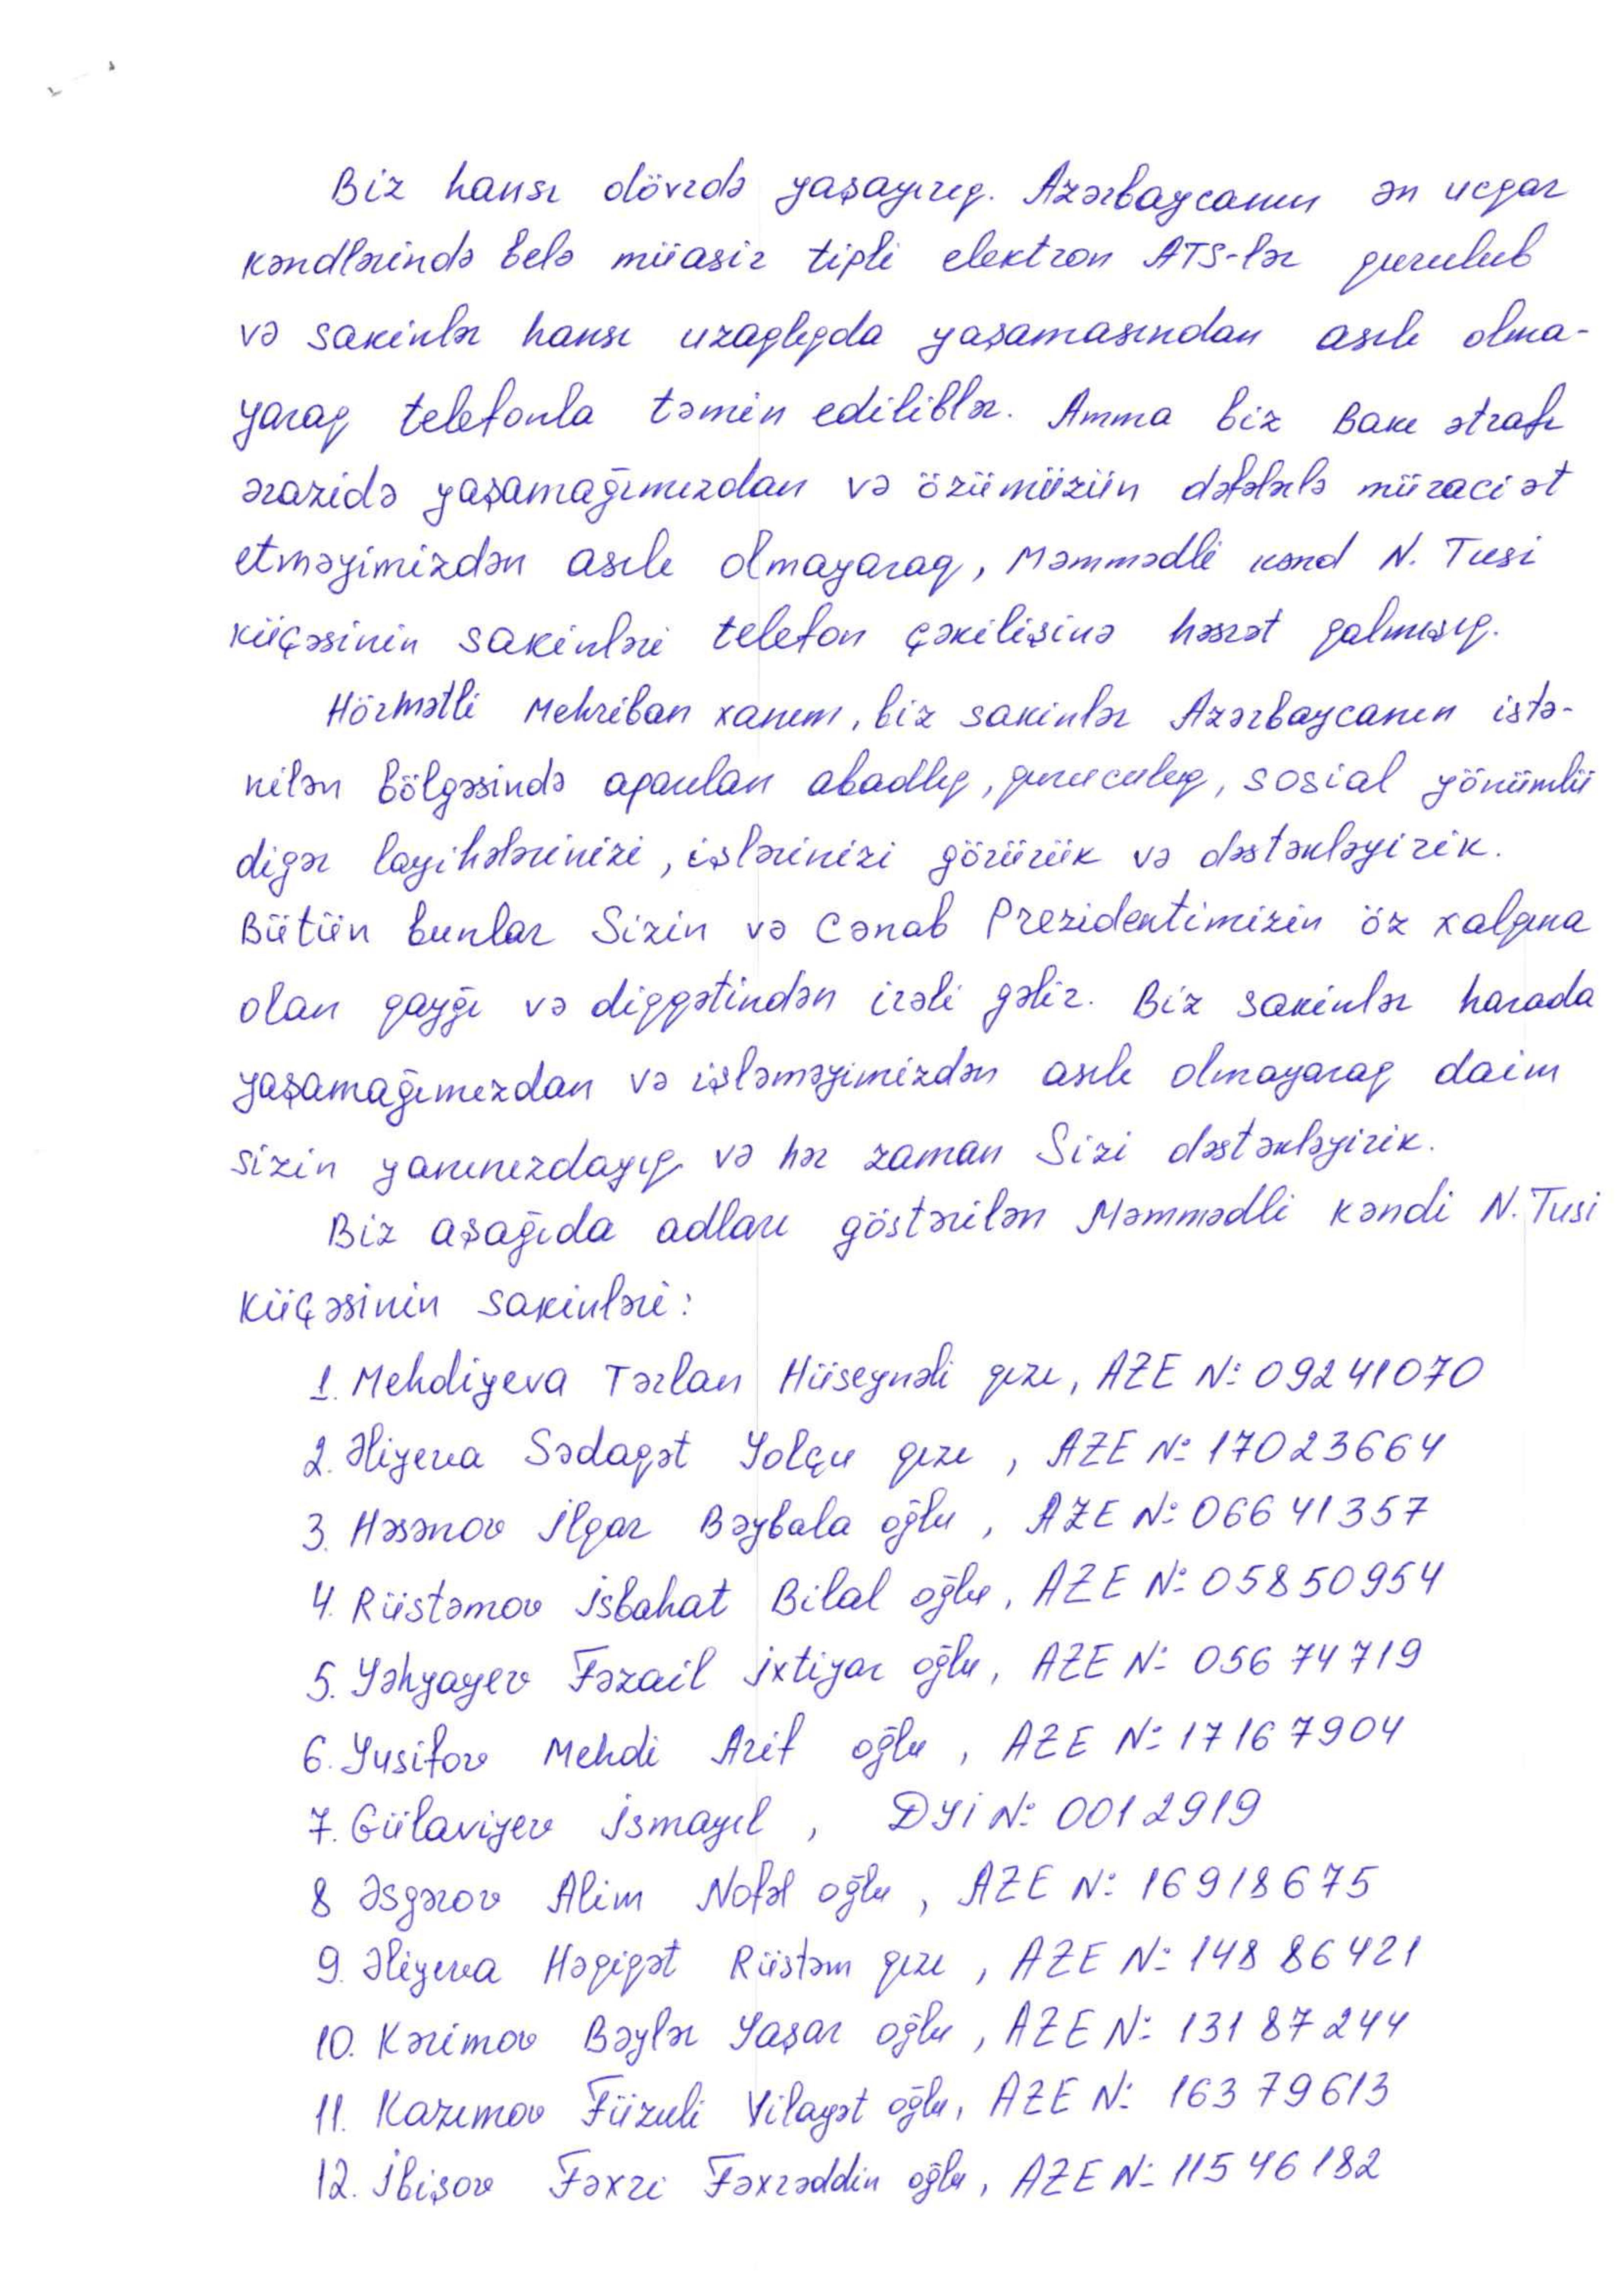 Biz hansı dövrdə yaşayırıq. Azərbaycanın ən ucqar
kəndlərində belə müasir tipli elektron ATS-lər qurulub
və sakinlər hansı uzaqlıqda yaşamasından asılı olma-
yaraq telefonla təmin ediliblər. Amma biz Bakı ətrafı
ərazidə yaşamağımızdan və özümüzün dəfələrlə müraciət
etməyimizdən asılı olmayaraq, Məmmədli kənd N. Tusi
küçəsinin sakinləri telefon çəkilişinə həsrət qalmışıq.
Hörmətli Mehriban xanım, biz sakinlər Azərbaycanın istə-
nilən bölgəsində aparılan abadlıq, quruculuq, sosial yönümlü
digər layihələrinizi, işlərinizi görürük və dəstəkləyirik.
Bütün bunlar Sizin və Cənab Prezidentimizin öz xalqına
olan qayğı və diqqətindən irəli gəlir. Biz sakinlər harada
yaşamağımızdan və işləməyimizdən asılı olmayaraq daim
sizin yanınızdayıq və hər zaman Sizi dəstəkləyirik.
Biz aşağıda adları göstərilən Məmmədli kəndi N. Tusi
küçəsinin sakinləri:
1. Mehdiyeva Tərlan Hüseynəli qızı, AZE №: 09241070
2. Əliyeva Sədaqət Yolçu qızı, AZE №: 17023664
3. Həsənov İlqar Bəybala oğlu, AZE №: 06641357
4. Rüstəmov İsbahat Bilal oğlu, AZE №: 05850954
5. Yəhyayev Fəzail İxtiyar oğlu, AZE №: 05674719
6. Yusifov Mehdi Arif oğlu, AZE №: 17167904
7. Gülaviyev İsmayıl, DYİ №: 0012919
8 Əsgərov Alim Nofəl oğlu, AZE №: 16918675
9. Əliyeva Həqiqət Rüstəm qızı, AZE №: 14886421
10. Kərimov Bəylər Yaşar oğlu, AZE №: 13187244
11. Kazımov Füzuli Vilayət oğlu, AZE №: 16379613
12. İbişov Fəxri Fəxrəddin oğlu, AZE №: 11546182